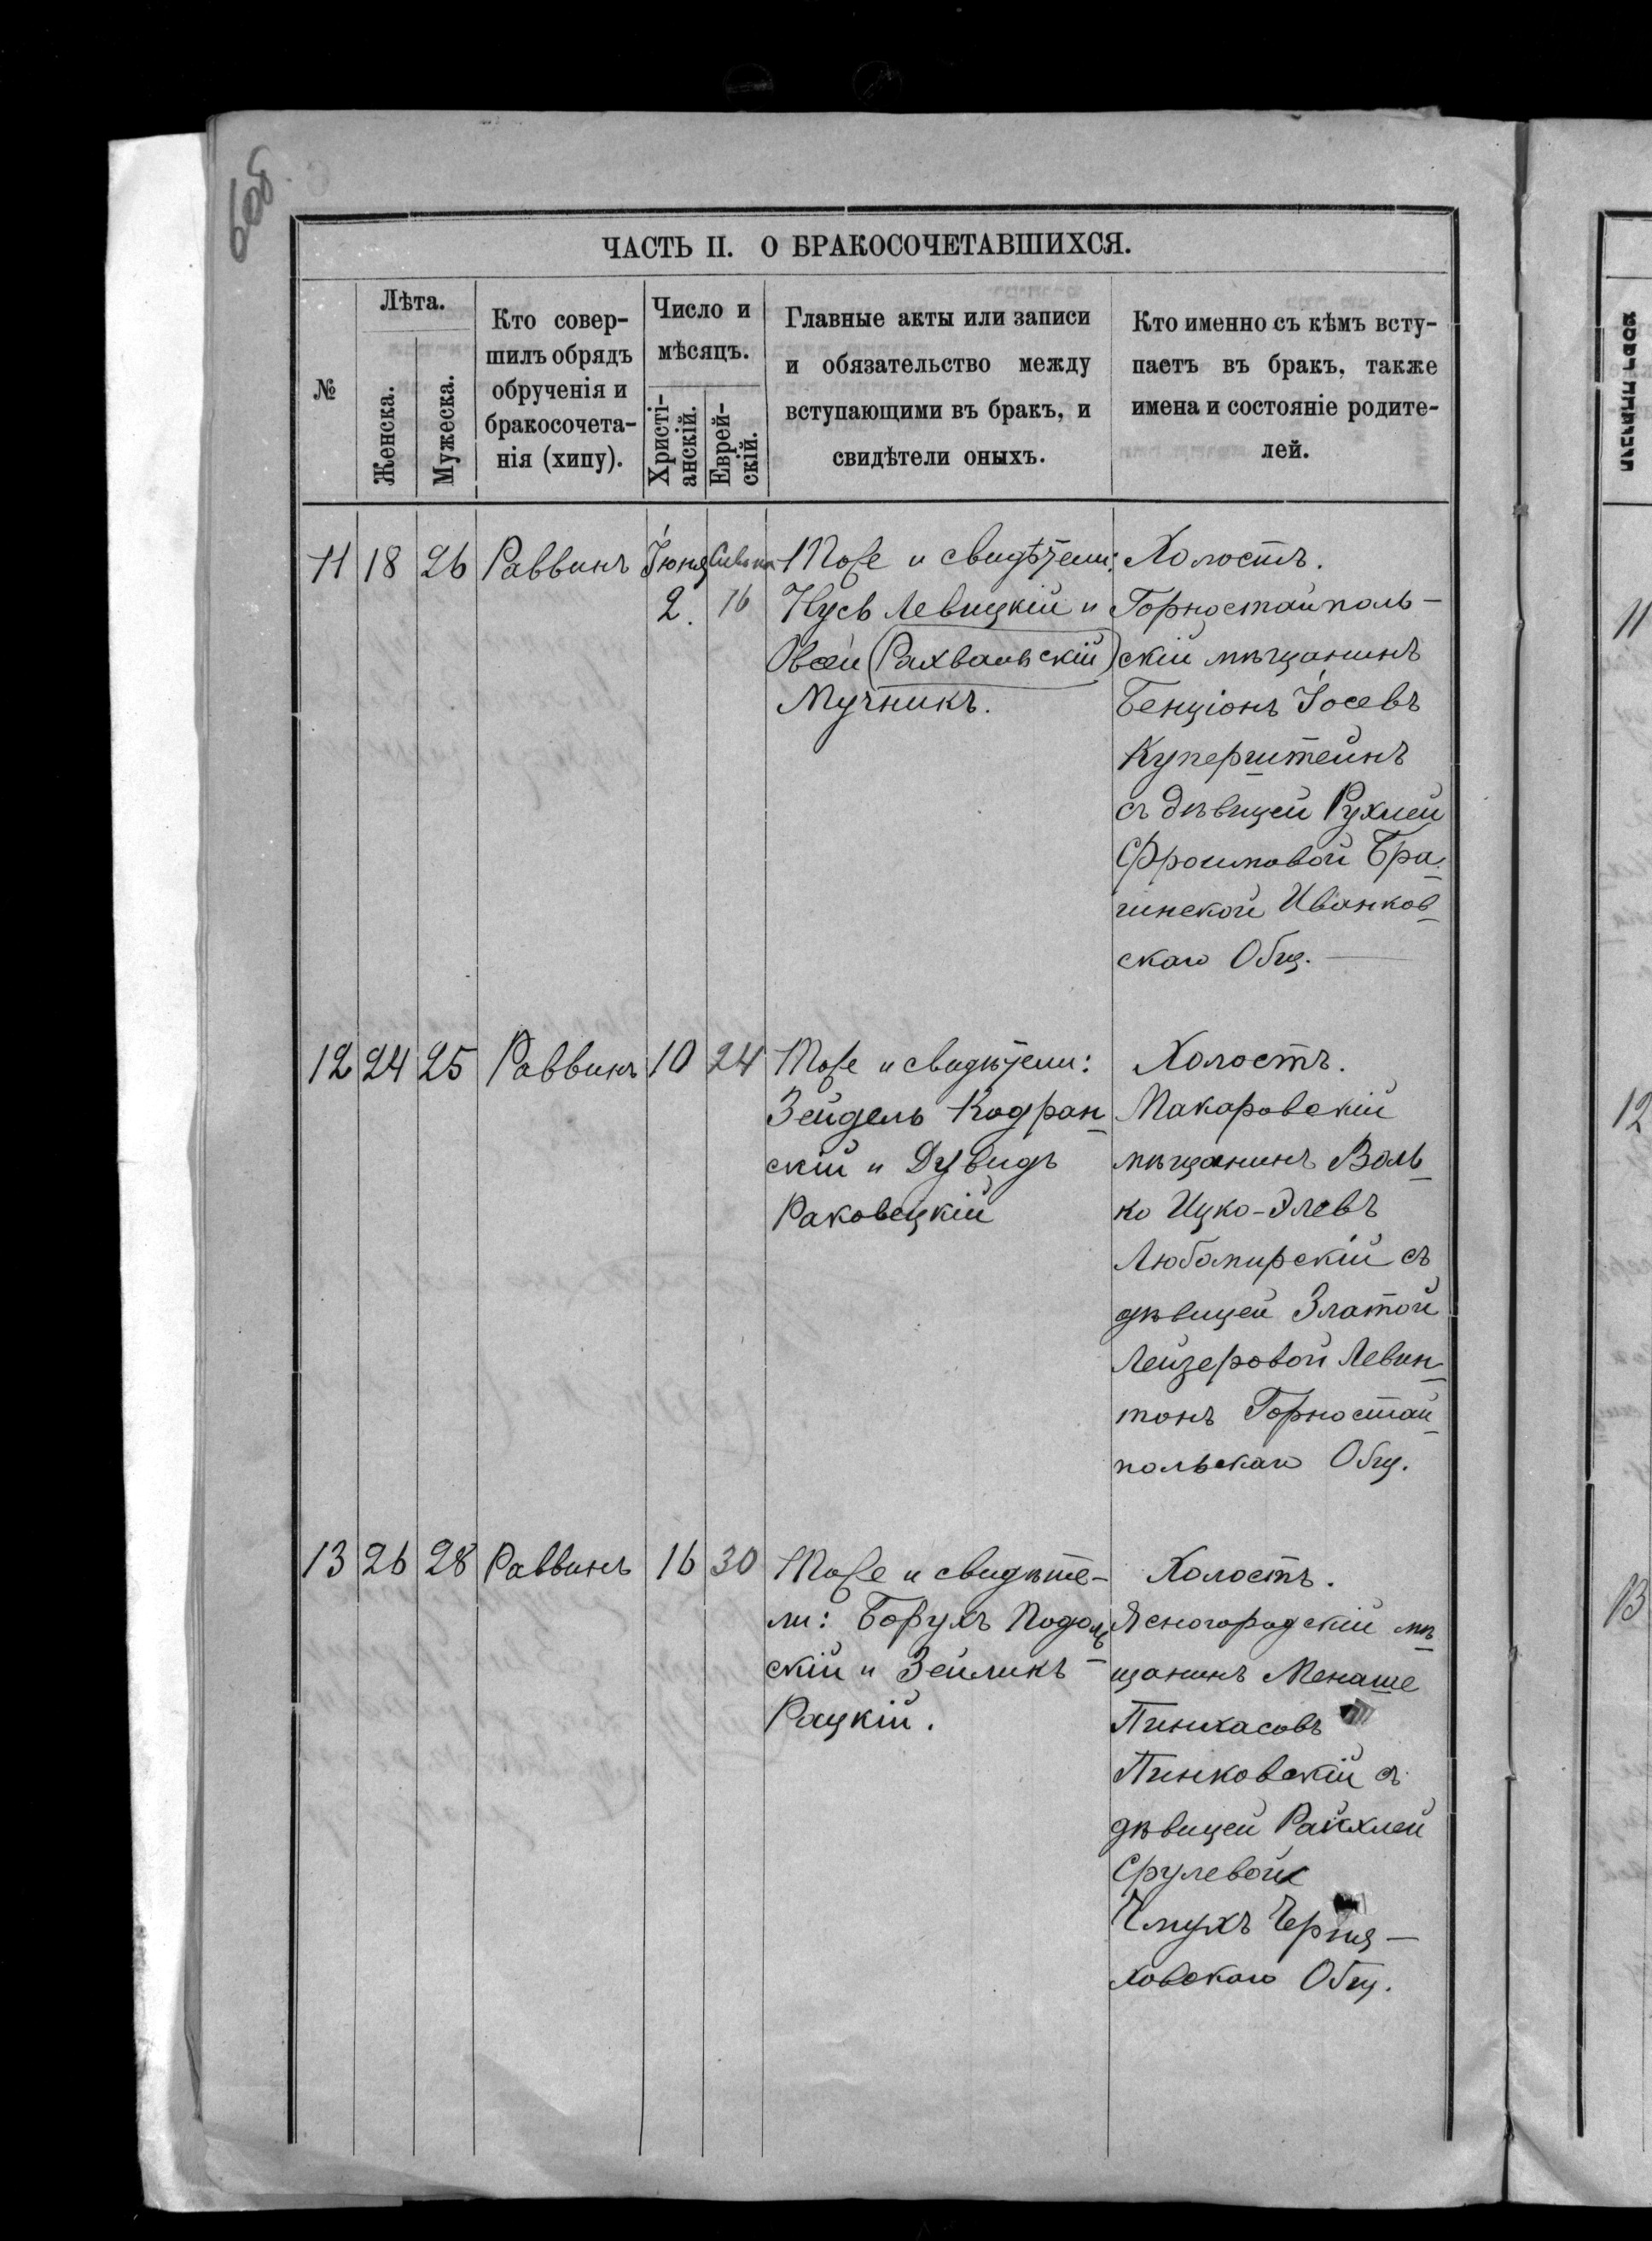 606
ЧАСТЬ II. О БРАКОСОЧЕТАВШИХСЯ.
№
Лѣта.
Женска.
Мужеска.
Кто совер-
шилъ обрядъ
обрученія и
бракосочета-
нія (хипу).
Число и
мѣсяцъ.
Христі-
анскій.
Еврей-
скій.
Главные акты или записи
и обязательство между
вступающими въ бракъ, и
свидѣтели оныхъ.
Кто именно съ кѣмъ всту-
паетъ въ бракъ, также
имена и состояніе родите-
лей.
11 18 26 Раввинъ Іюня 2. Сивана 16
Тоже и свидѣтели:
Нусь Левицкій и
Овсей (Рахвальскій)
Мучникъ.
Холостъ.
Горностайполь-
скій мѣщанинъ
Бенціонъ Іосевъ
Куперштейнъ
съ дѣвицей Рухлей
Фроимовой Бра-
гинской Иванков-
скаго Общ.
12 24 25 Раввинъ 10 24
Тоже и свидѣтели:
Зейдель Кодран-
скій и Дувидъ
Раковецкій
Холостъ.
Макаровскій
мѣщанинъ Воль-
ко Ицко-Элевъ
Любомирскій съ
дѣвицей Златой
Лейзеровой Левин-
тонъ Горностай-
польскаго Общ.
13 26 28 Раввинъ 16 30
Тоже и свидѣте-
ли: Борухъ Подоль-
скій и Зейликъ
Рацкій.
Холостъ.
Ясногородскій мѣ-
щанинъ Менаше
Пинхасовъ
Пинковскій съ
дѣвицей Райхлей
Срулевой
Чмухъ Черня-
ховскаго Общ.
11
12
13